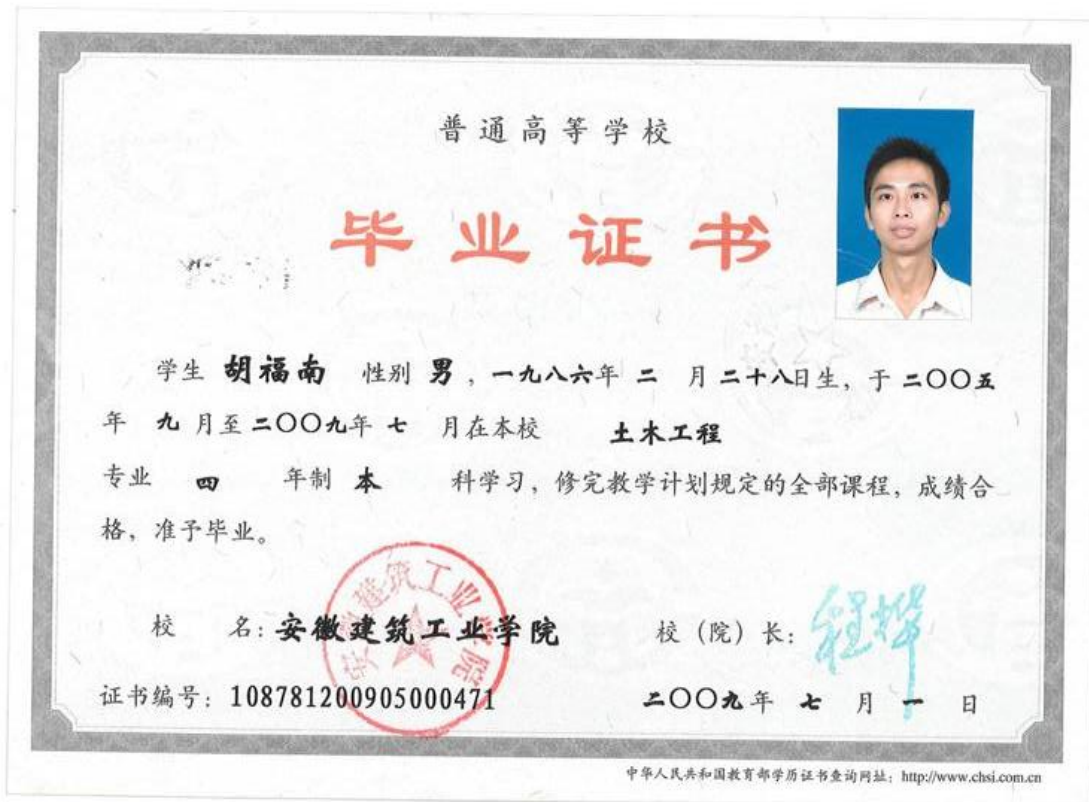 普通高等学校
毕业证书
学生 胡福南 性别 男，一九八六年 二 月 二十八日生，于 二〇〇五
年 九 月至 二〇〇九年 七 月在本校 土木工程
专业 四 年制 本 科学习，修完教学计划规定的全部课程，成绩合
格，准予毕业。
安徽建筑工业学院
校 名：安徽建筑工业学院 校（院）长：程桦
证书编号：108781200905000471 二〇〇九年 七 月 一 日
中华人民共和国教育部学历证书查询网址：http://www.chsi.com.cn